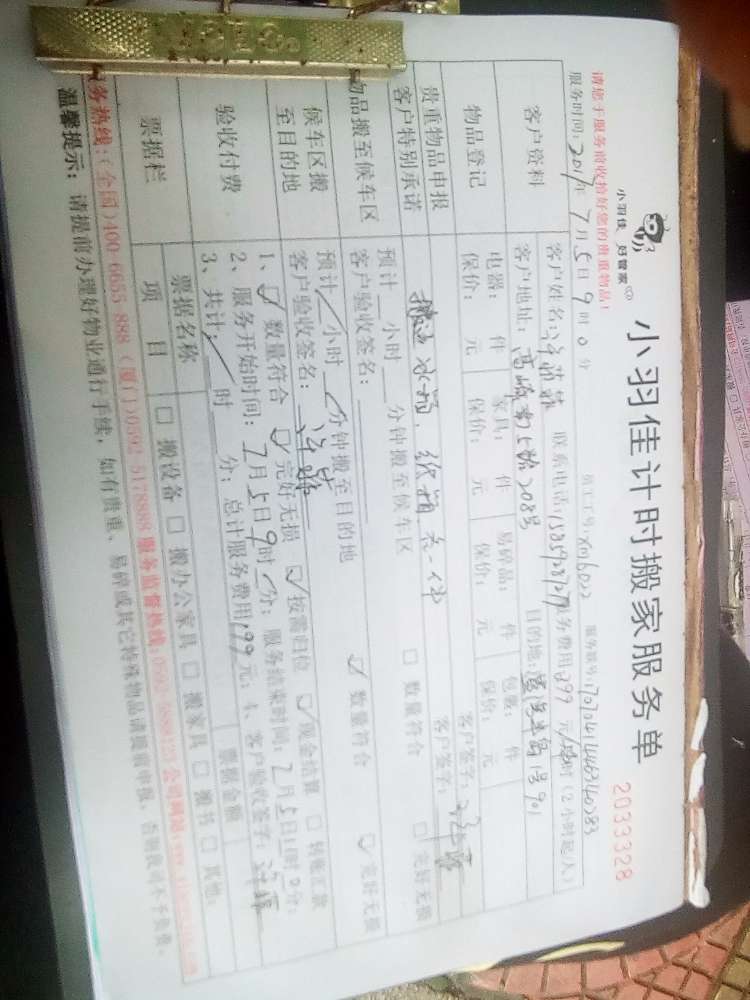 小羽佳计时搬家服务单
2033328
小羽佳 好管家
请您于服务前收拾好您的贵重物品!
服务时间: 2017年7月5日9时0分 员工工号: xm6022 服务账号:
客户资料
客户姓名: 联系电话: 服务费用299元/小时(2小时起/人)
客户地址: 208号 目的地: 1号901
物品登记
电器: 件 家具: 件 易碎品: 件 包裹: 件
保价: 元 保价: 元 保价: 元 保价: 元
客户签字:
贵重物品申报
客户特别承诺
搬冰箱,纸箱
客户签字:
物品搬至候车区
预计 小时 分钟搬至候车区 □ 数量符合 □ 完好无损
客户验收签名:
候车区搬
至目的地
预计 小时 分钟搬至目的地 ☑ 数量符合 ☑ 完好无损
客户验收签名:
验收付费
1、☑ 数量符合 ☑ 完好无损 ☑ 按需归位 ☑ 现金结算 □ 转账汇款
2、服务开始时间: 7月5日9时 分; 服务结束时间: 7月5日 时0分;
3、共计: 时 分; 总计服务费用 199元; 4、客户验收签字:
票据栏
票据名称 票据金额
项目 □ 搬设备 □ 搬办公家具 □ 搬家具 □ 搬书 □ 其他:
服务热线:(全国)400-6655-888 (厦门)0592-5178888 服务监督热线: 公司网站:
温馨提示: 请提前办理好物业通行手续, 如有贵重、易碎或其它特殊物品请提前申报, 否则我司不予负责。